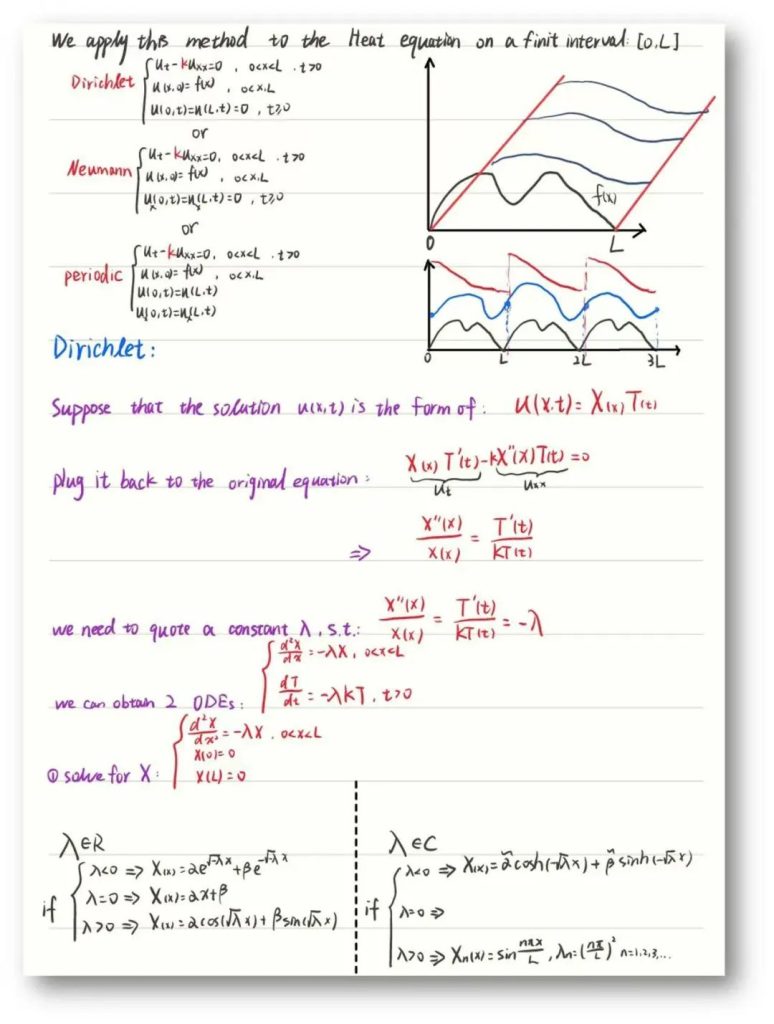 We apply this method to the Heat equation on a finit interval [0,L]
Dirichlet { Ut-kUxx=0, 0<x<L, t>0
u(x,0)=f(x), 0<x,L
u(0,t)=u(L,t)=0, t≥0
or
Neumann { Ut-kUxx=0, 0<x<L, t>0
u(x,0)=f(x), 0<x,L
Ux(0,t)=Ux(L,t)=0, t≥0
or
periodic { Ut-kUxx=0, 0<x<L, t>0
u(x,0)=f(x), 0<x,L
u(0,t)=u(L,t)
Ux(0,t)=Ux(L,t)
f(x)
0 L
0 L 2L 3L
Dirichlet:
Suppose that the solution u(x,t) is the form of: u(x,t)=X(x)T(t)
plug it back to the original equation: X(x)T'(t)-kX''(x)T(t)=0
Ut Uxx
⇒ X''(x)/X(x) = T'(t)/kT(t)
we need to quote a constant λ, s.t.: X''(x)/X(x) = T'(t)/kT(t) = -λ
we can obtain 2 ODEs: { d²X/dx = -λX, 0<x<L
dT/dt = -λkT, t>0
① solve for X: { d²X/dx² = -λX, 0<x<L
X(0)=0
X(L)=0
λ∈R
if { λ<0 ⇒ X(x)=αe^√-λx+βe^-√λx
λ=0 ⇒ X(x)=αx+β
λ>0 ⇒ X(x)=αcos(√λx)+βsin(√λx)
λ∈C
if { λ<0 ⇒ X(x)=α̃cosh(-√λx)+β̃sinh(-√λx)
λ=0 ⇒
λ>0 ⇒ Xn(x)=sin nπx/L, λn=(nπ/L)² n=1,2,3,...